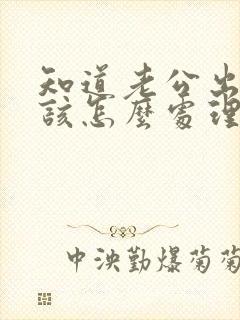 知道老公出
該怎麼處理
中泱勤爆菊菊